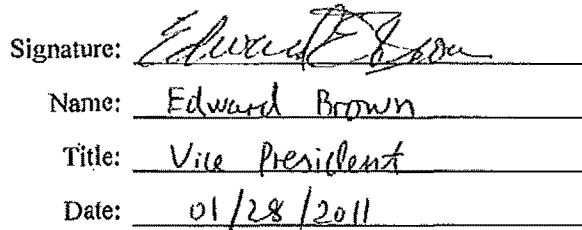 Signature: Edward E Brown
Name: Edward Brown
Title: Vice President
Date: 01/28/2011